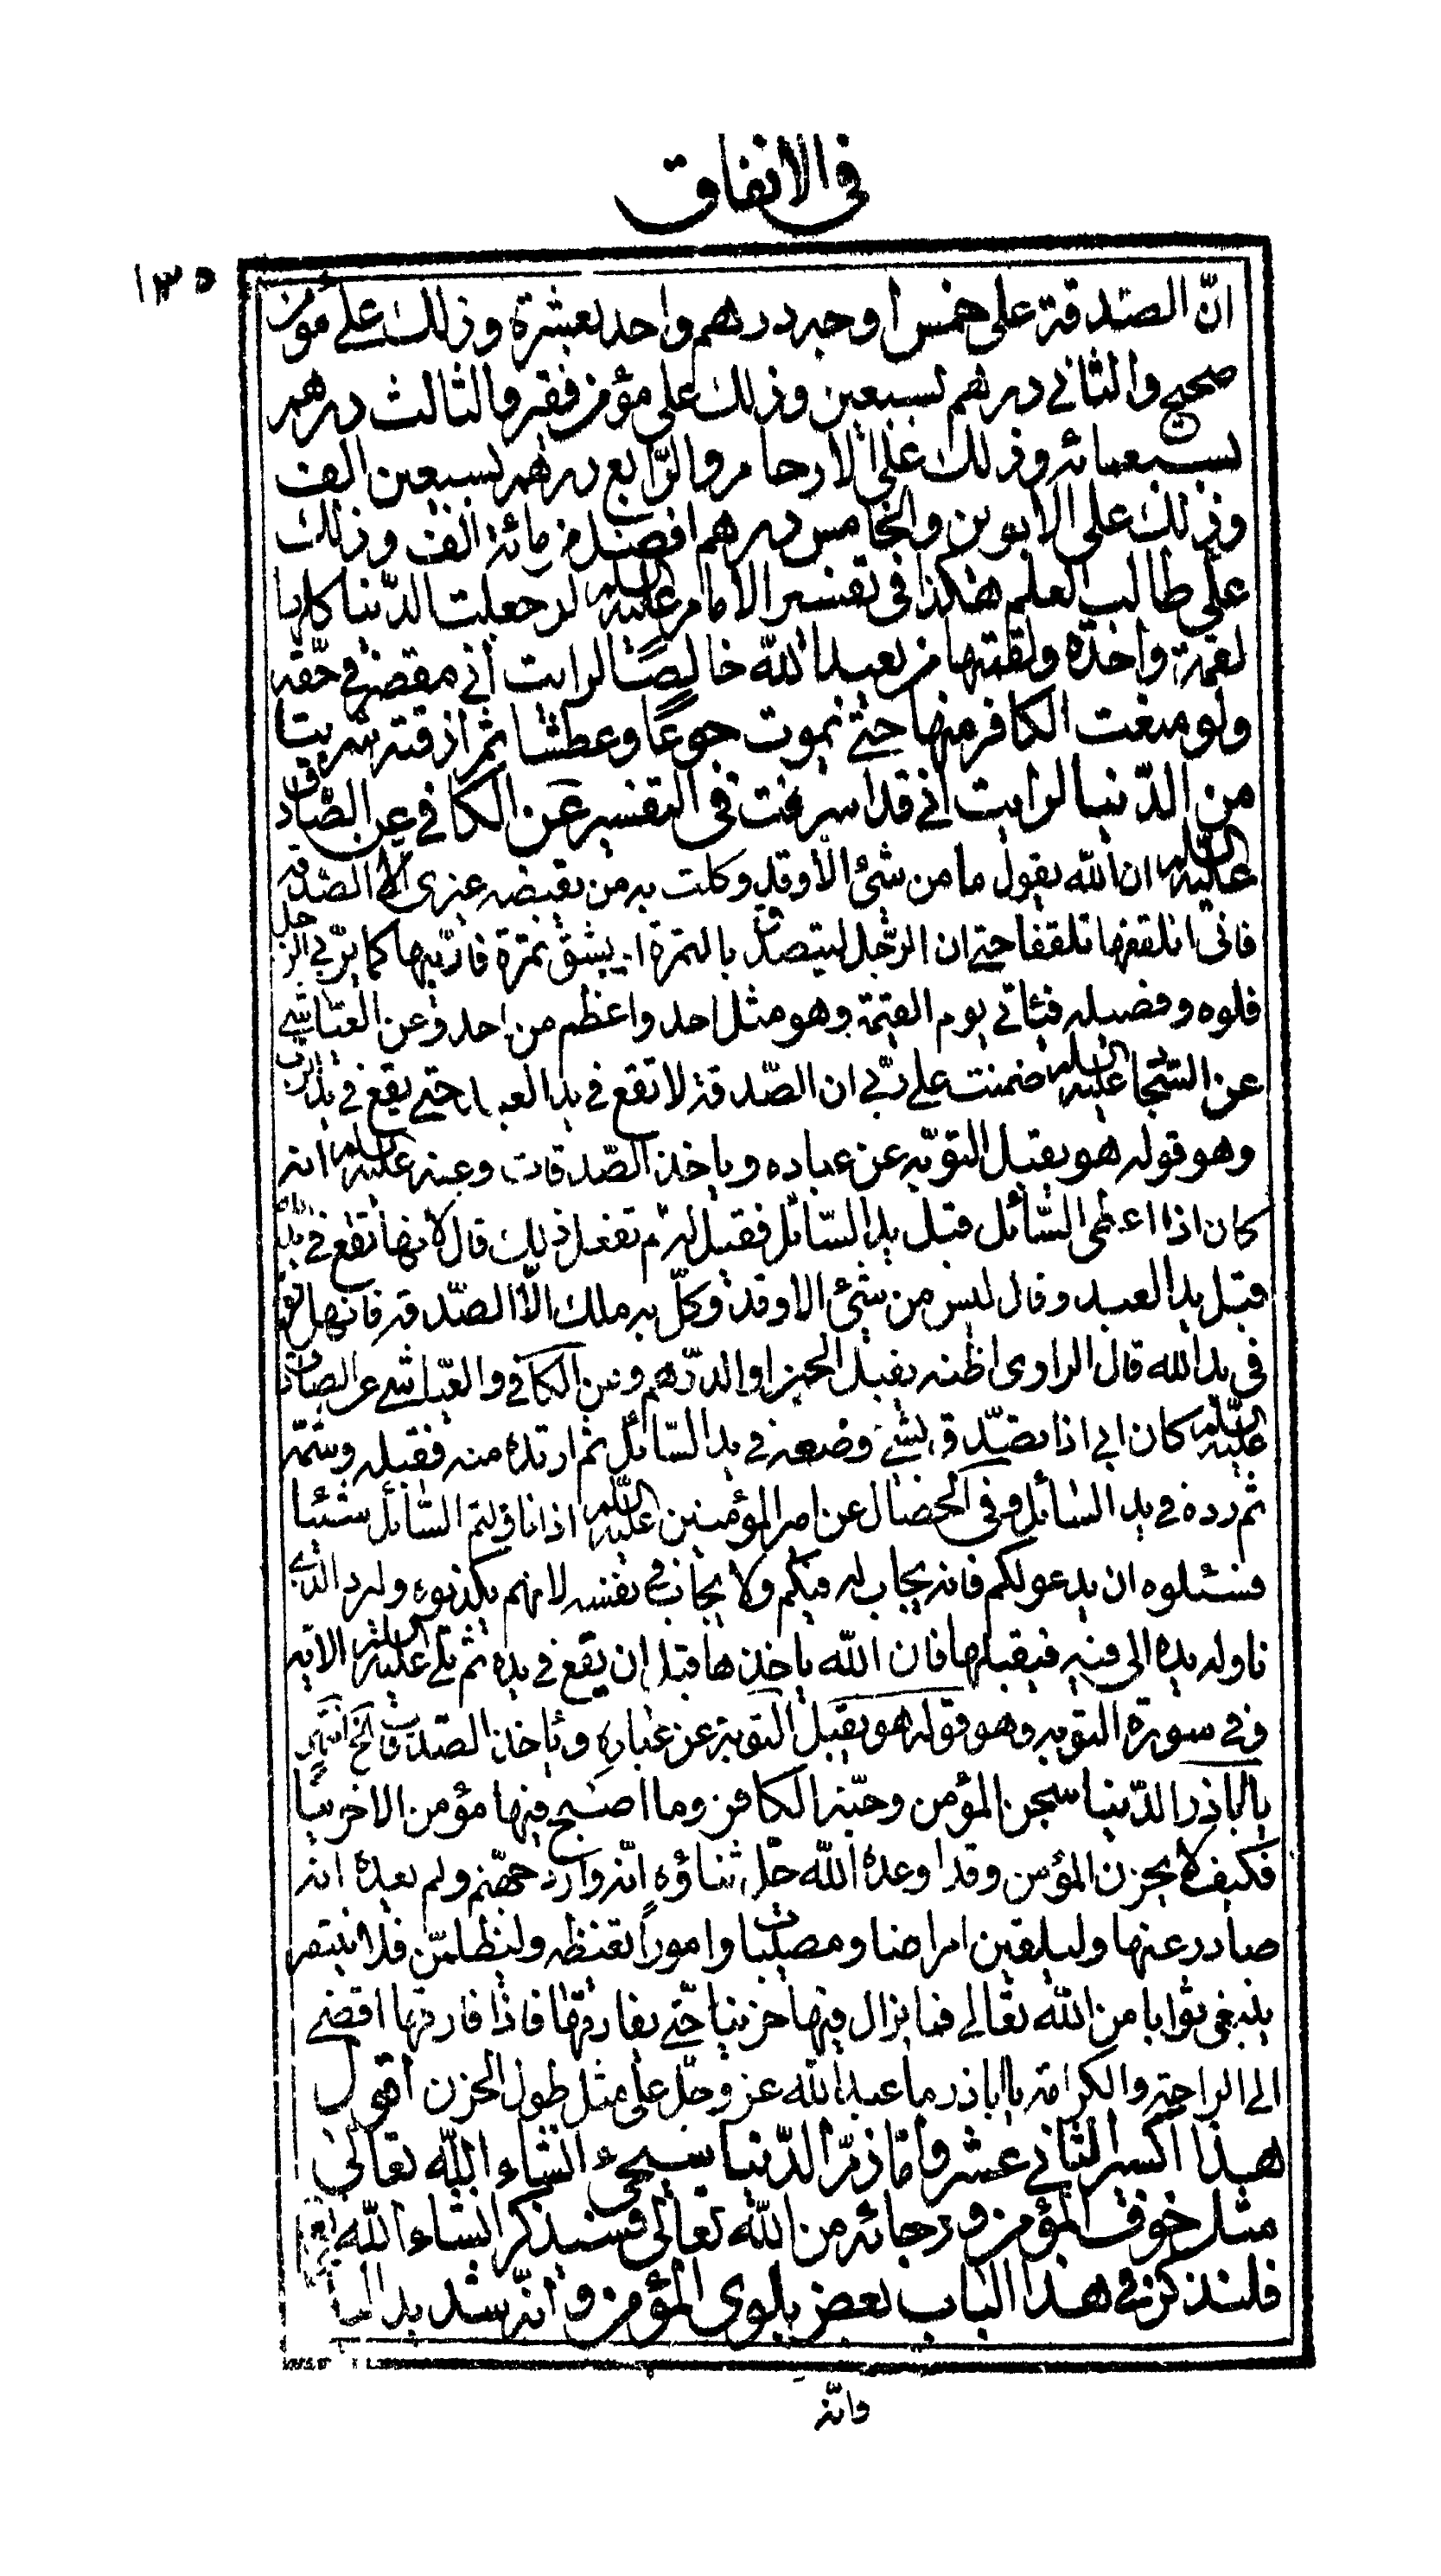 فی الانفاق
١٣٥
انّ الصّدقة علی خمس اوجه درهم واحد بعشرة وذلك علی مؤمن
صحیح والثانی درهم بسبعین وذلك علی مؤمن فقیر والثالث درهم
بسبعمائه وذلك علی الارحام والرّابع درهم بسبعین الف
وذلك علی الابوین والخامس درهم افضل من مائة الف وذلك
علی طالب العلم هکذا فی تفسیر الامام علیه السلم لو جعلت الدّنیا کلها
لقمة واحدة ولقمتها من یعبد الله خالصًا لرایت انّی مقصر فی حقّه
ولو منعت الکافر منها حتی یموت جوعًا وعطشا ثم اذقته شربتا
من الدّنیا لرایت انی قد اسرفت فی التفسیر عن الکافی عن الصّادق
علیه السلم ان الله یقول ما من شیئ الّا وقد وکلت به من یقبضه غیری الا الصّدقه
فانی اتلقفها تلقفا حتی ان الرّجل لیتصدق بالتمرة او بشق تمرة فاربّیها کما یربّی الرجل
فلوه وفصیله فیئاتی یوم القیمة وهو مثل احد واعظم من احد وعن العیّاشی
عن السّجاد علیه السلم ضمنت علی ربّی ان الصّدقة لا تقع فی ید العبد حتی یقع فی ید الرب
وهو قوله هو یقبل التوبه عن عباده ویاخذ الصّدقات وعنه علیه السلم انه
کان اذا اعطی السّائل قبل ید السّائل فقیل له لم تفعل ذلك قال لانها تقع فی ید الله
قبل ید العبد وقال لیس من شیئ الا وقد وکّل به ملك الّا الصّدقه فانها تقع
فی ید الله قال الراوی اظنه یقبل الخبز او الدّرهم وعن الکافی والعیّاشی عن الصادق
علیه السلم کان ابی اذا تصدّق بشیئ وضعه فی ید السّائل ثم ارتده منه فقبله وشمّه
ثم رده فی ید السائل وفی الخصال عن امیر المؤمنین علیه السلم اذا ناولتم السّائل شیئا
فسئلوه ان یدعو لکم فانه یجاب له فیکم ولا یجاب فی نفسه لانهم یکذبون ولیرد الذی
ناوله یده الی فیه فیقبلها فان الله یاخذها قبل ان یقع فی یده ثم تلی علیه السلم الایه
وفی سورة التوبه وهو قوله هو یقبل التوبة عن عباده ویاخذ الصّدقات الخ انتهی
یا اباذر الدّنیا سجن المؤمن وجنّة الکافر وما اصبح فیها مؤمن الا حزینا
فکیف لا یحزن المؤمن وقد اوعده الله جلّ ثناؤه انّه وارد جهنّم ولم یعده انه
صادر عنها ولیلقین امراضا ومصیبات واموراً تغیظه ولیظلمنّ فلا ینتصر
ینبغی ثوابا من الله تعالی فما یزال فیها حزینا حتی یفارقها فاذا فارقها افضی
الی الراحة والکرامة یا اباذر ما عبد الله عز وجلّ علی مثل طول الحزن اقول
هذا اکسیر الثانی عشر وامّا ذمّ الدّنیا سیجیء انشاء الله تعالی
مثل خوف المؤمن ورجائه من الله تعالی فسنذکر انشاء الله تعالی
فلنذکرنّ فی هذا الباب بعض بلوی المؤمن وانّه شدید البلاء
وانّه